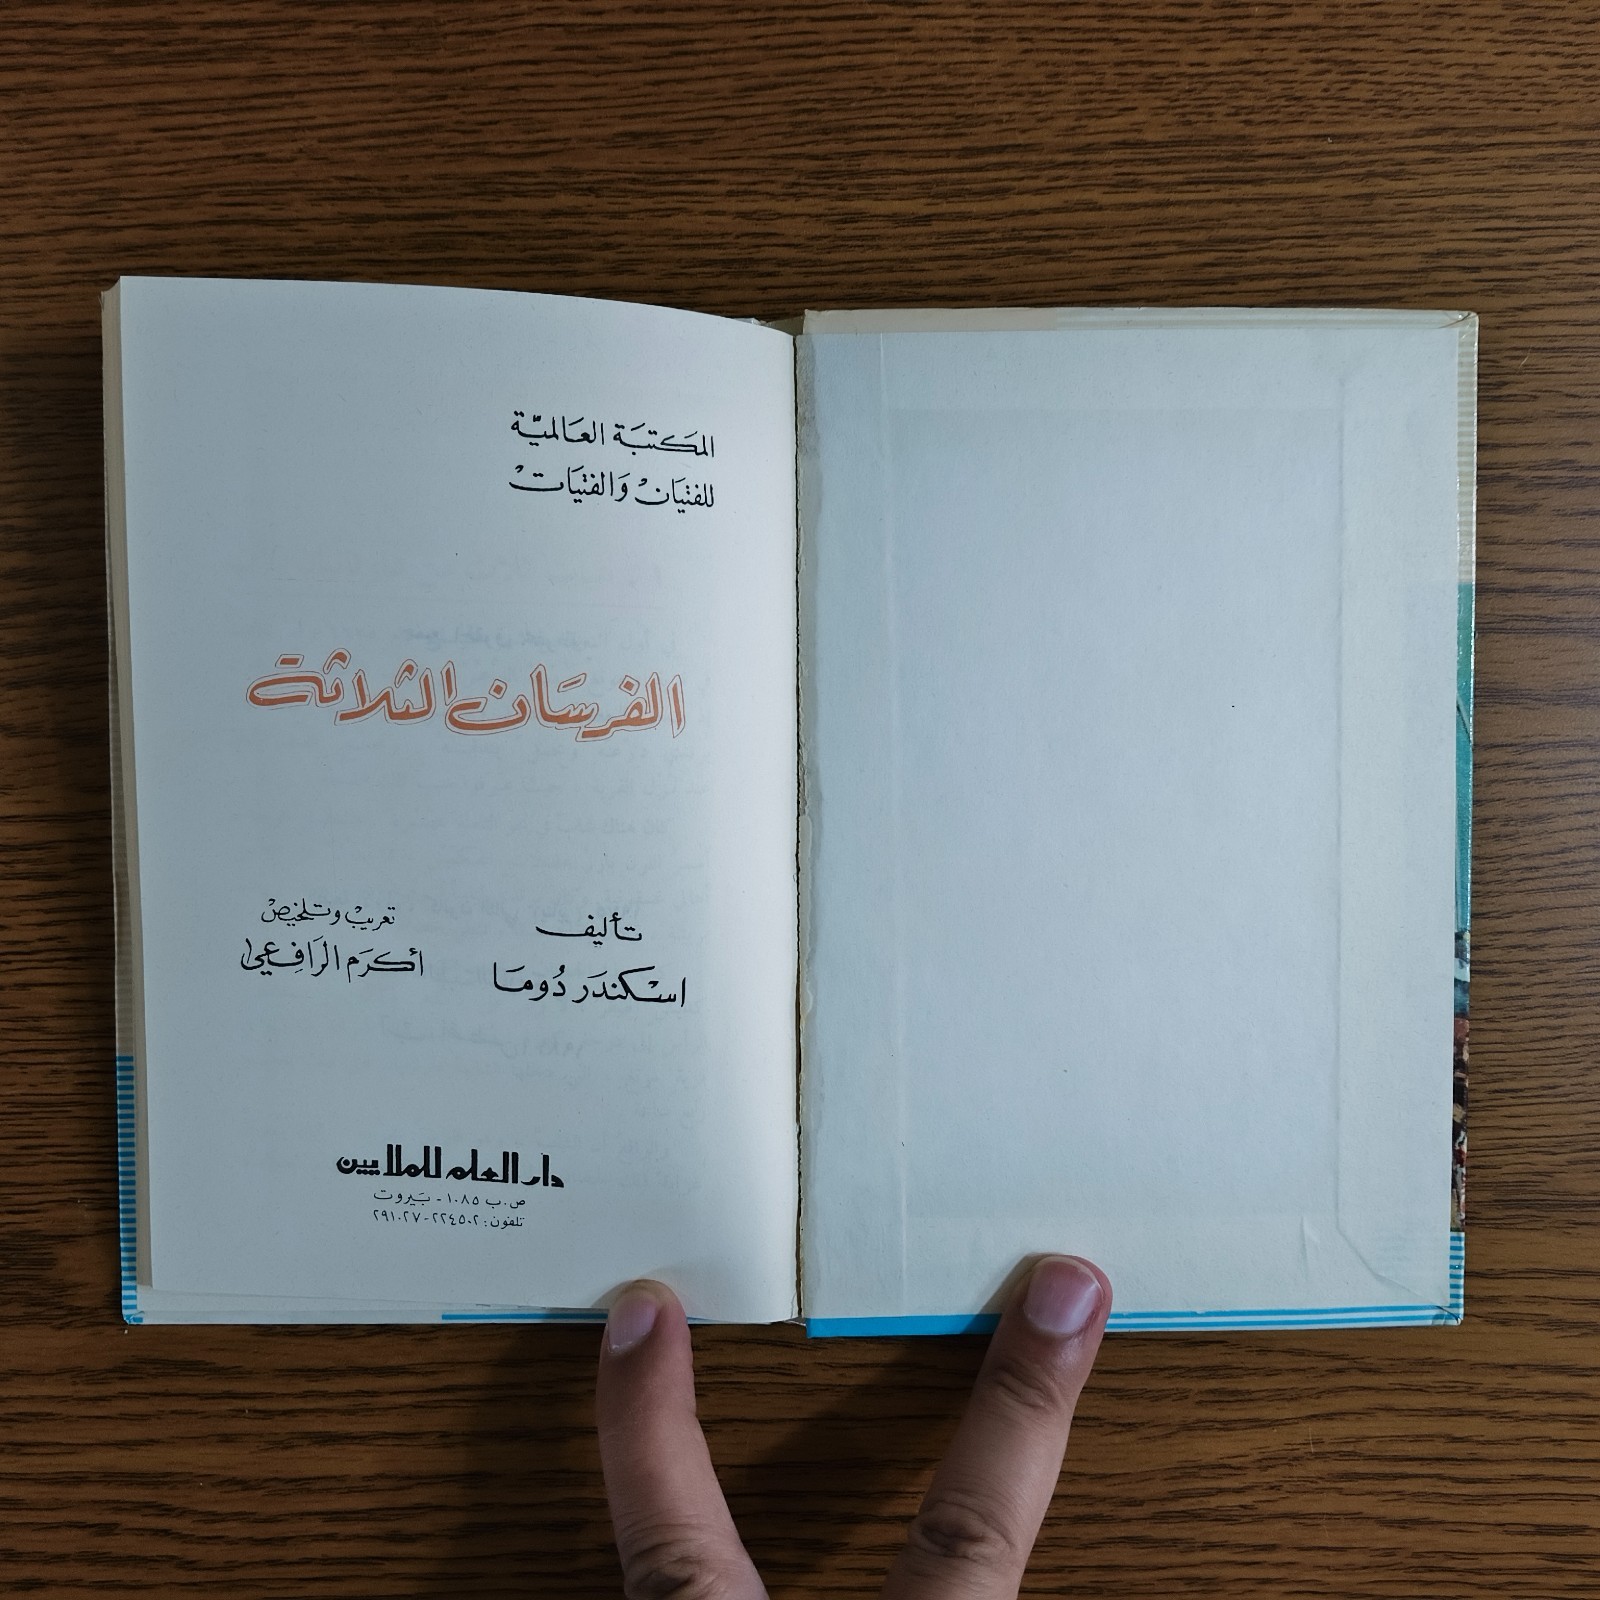 المَكتبَة العَالميّة
للفتيَانْ وَالفتيَاتْ
الفرسَان الثلاثة
تأليف
اسْكندَر دُومَا
تعريبْ وتلخيصْ
أكرَم الرَافِعيْ
دار العلم للملايين
ص.ب ١٠٨٥ - بَيروت
تلفون: ٢٢٤٥٠٢-٢٩١٠٢٧